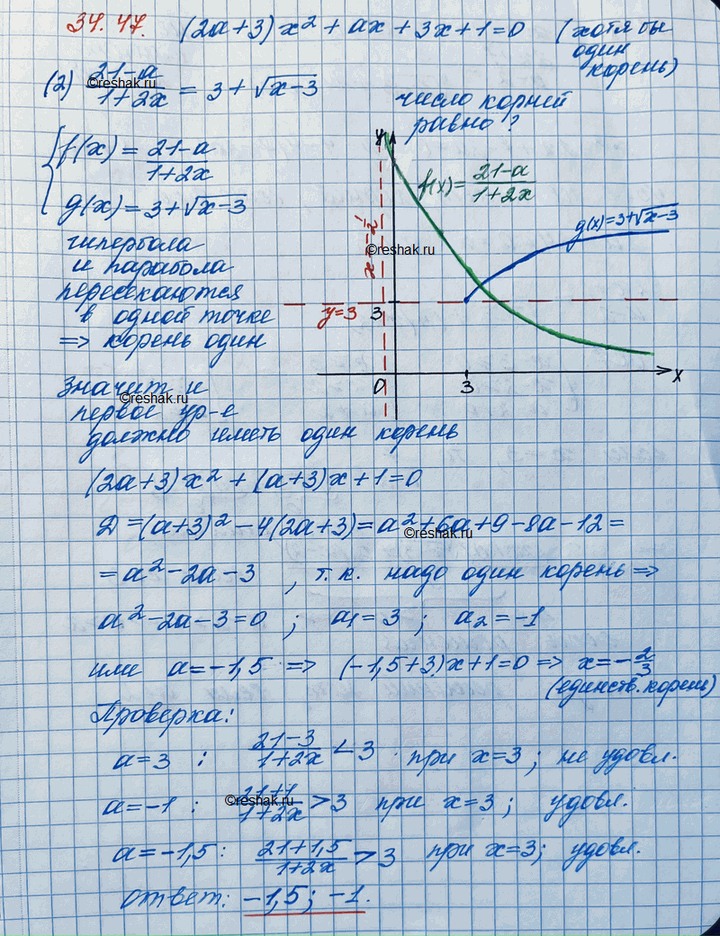 34.47. (2a+3)x² + ax + 3x + 1 = 0 (хотя бы один корень)
(2) (21-a)/(1+2x) = 3 + √(x-3)
число корней равно?
{ f(x) = (21-a)/(1+2x)
g(x) = 3+√(x-3)
гипербола
и парабола
пересекаются
в одной точке
=> корень один
y
f(x) = (21-a)/(1+2x)
g(x)=3+√(x-3)
x = -1/2
y=3 3
0 3 x
Значит и
первое ур-е
должно иметь один корень
(2a+3)x² + (a+3)x + 1 = 0
Д = (a+3)² - 4(2a+3) = a² + 6a + 9 - 8a - 12 =
= a² - 2a - 3 , т.к. надо один корень =>
a² - 2a - 3 = 0 ; a₁ = 3 ; a₂ = -1
или a = -1,5 => (-1,5+3)x + 1 = 0 => x = -2/3
(единств. корень)
Проверка:
a = 3 : (21-3)/(1+2x) < 3 при x=3 ; не удовл.
a = -1 : (21+1)/(1+2x) > 3 при x=3 ; удовл.
a = -1,5 : (21+1,5)/(1+2x) > 3 при x=3; удовл.
Ответ: -1,5 ; -1.
©reshak.ru
©reshak.ru
©reshak.ru
©reshak.ru
©reshak.ru